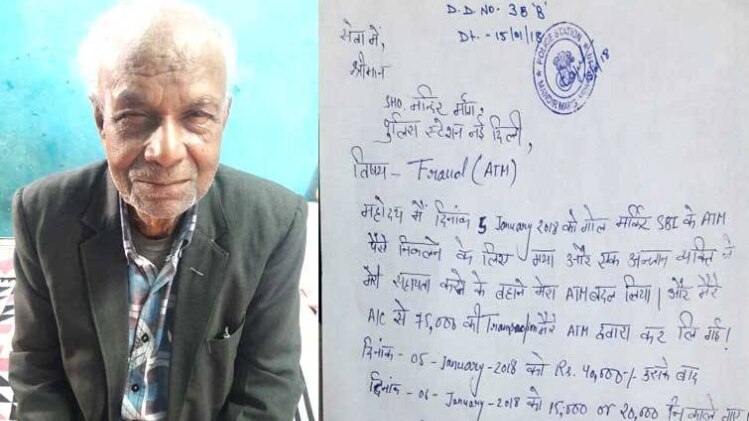 D.D NO. 38 'B'
Dt. - 15/01/18
POLICE STATION
MANDIR MARG
सेवा में,
श्रीमान
SHO. मन्दिर मार्ग,
पुलिस स्टेशन नई दिल्ली,
विषय - Fraud (ATM)
महोदय मैं दिनांक 5 January 2018 को गोल मार्किट SBI के ATM
पैसे निकलने के लिए गया और एक अन्जान व्यक्ति ने
मेरी सहायता करने के बहाने मेरा ATM बदल लिया। और मेरे
A/C से 75,000 की Transaction मेरे ATM द्वारा कर लि गई।
दिनांक - 05 - January - 2018 को Rs. 40,000/- इसके बाद
दिनांक - 06 - January - 2018 को 15,000 or 20,000 निकाले गए।